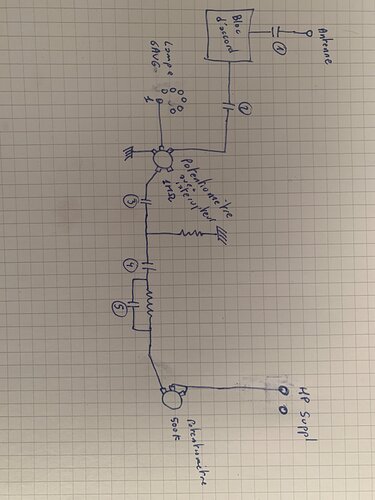 Antenne
1
Bloc
d'accord
2
Lampe
6AV6
1
Potentiomètre
avec
interrupteur
1MΩ
3
4
5
HP Suppl
Potentiomètre
500K